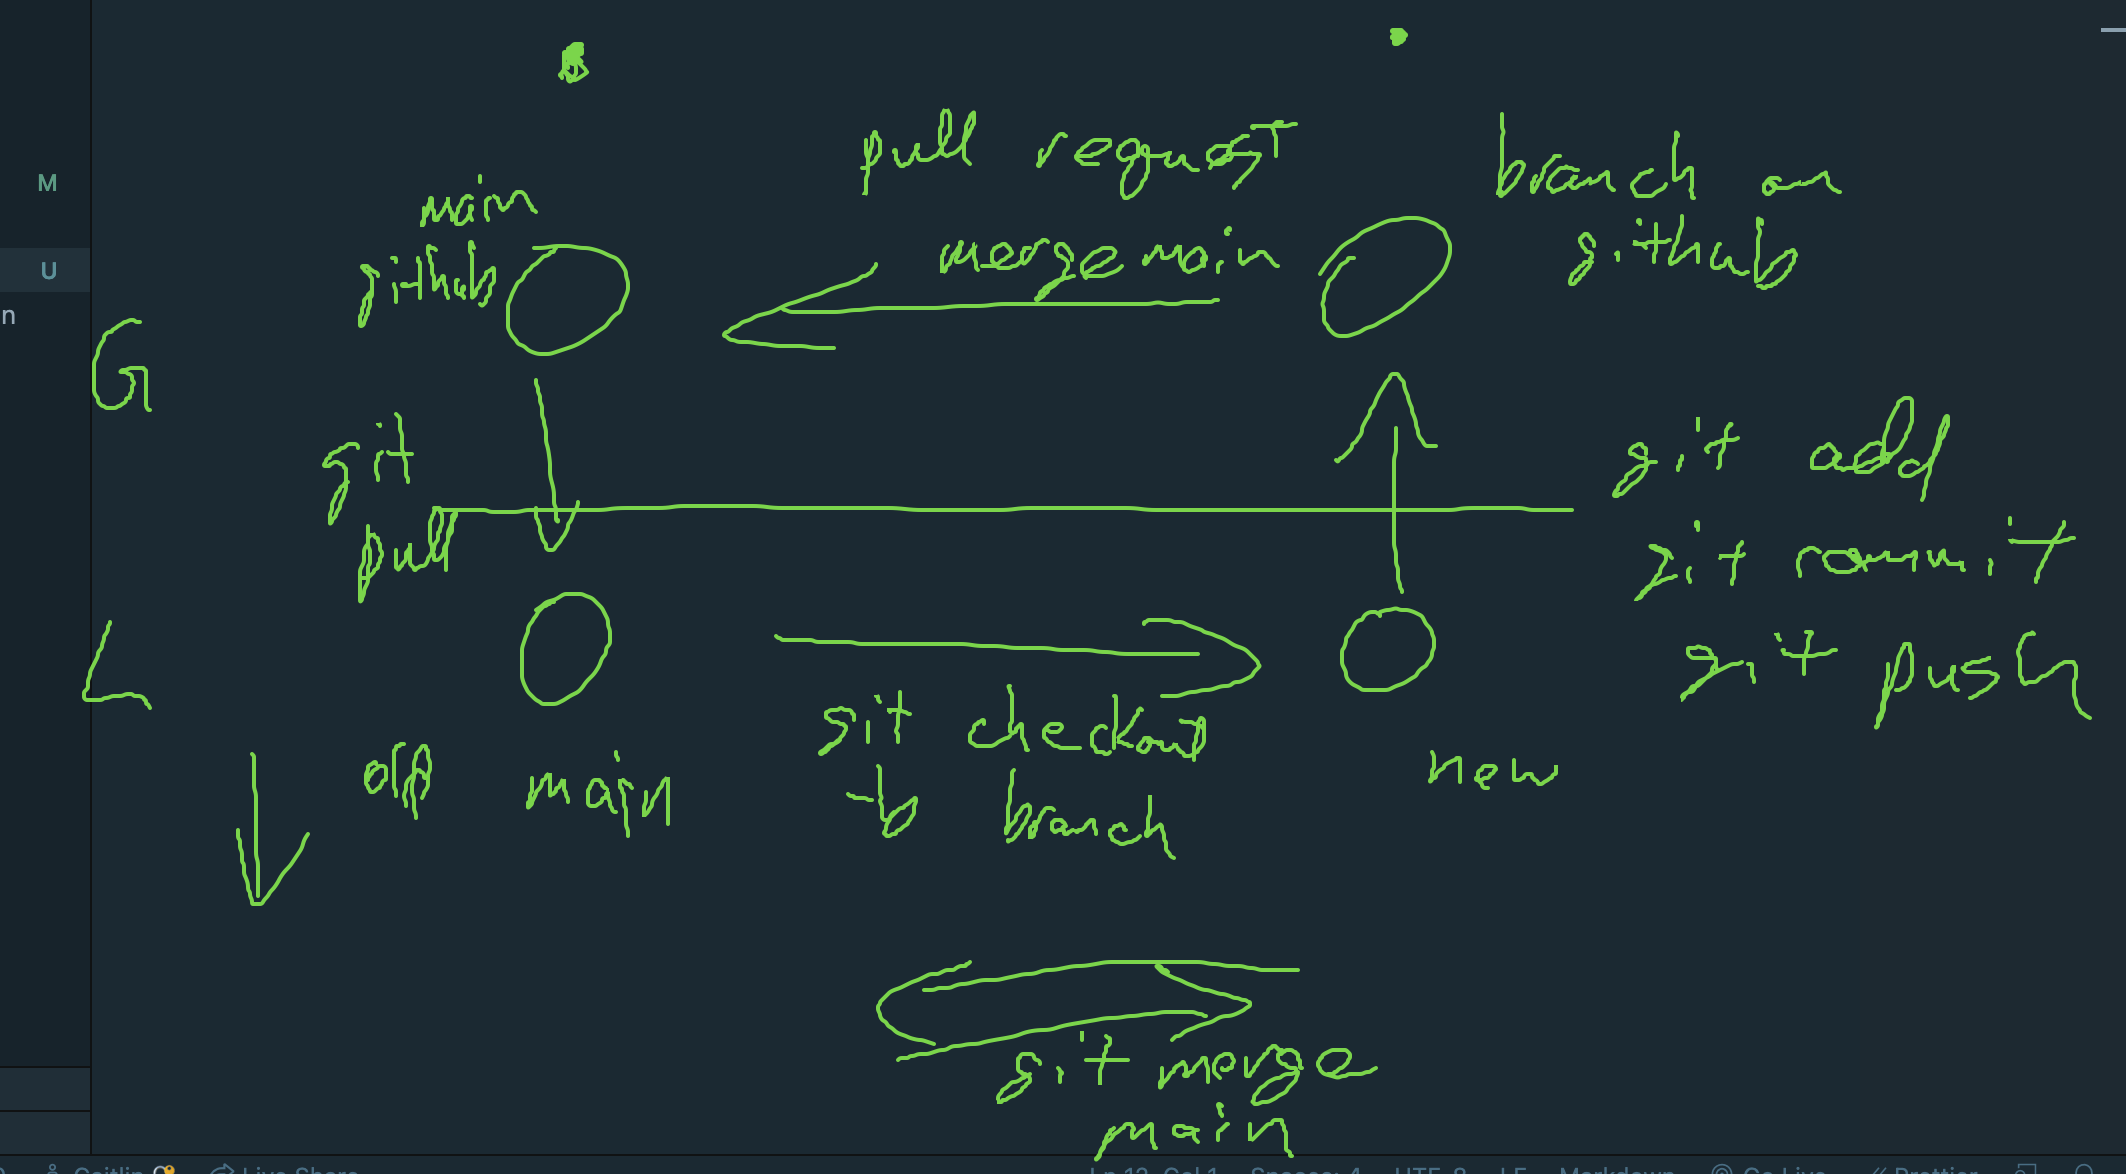 M
U
n
pull request
main
github
merge main
branch on
github
G
git
pull
git add
git commit
git push
L
git checkout
-b branch
main
new
git merge
main
Caitlin
Live Share
Ln 12, Col 1
Spaces: 4
UTF-8
LF
Markdown
Go Live
Prettier